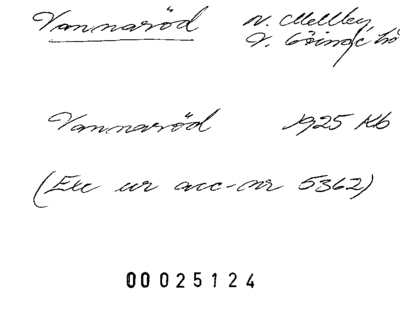 Vannaröd N. Mellby,
V. Göinge hd
Vannaröd 1925 Kb
(Exc ur acc-nr 5362)
00025124